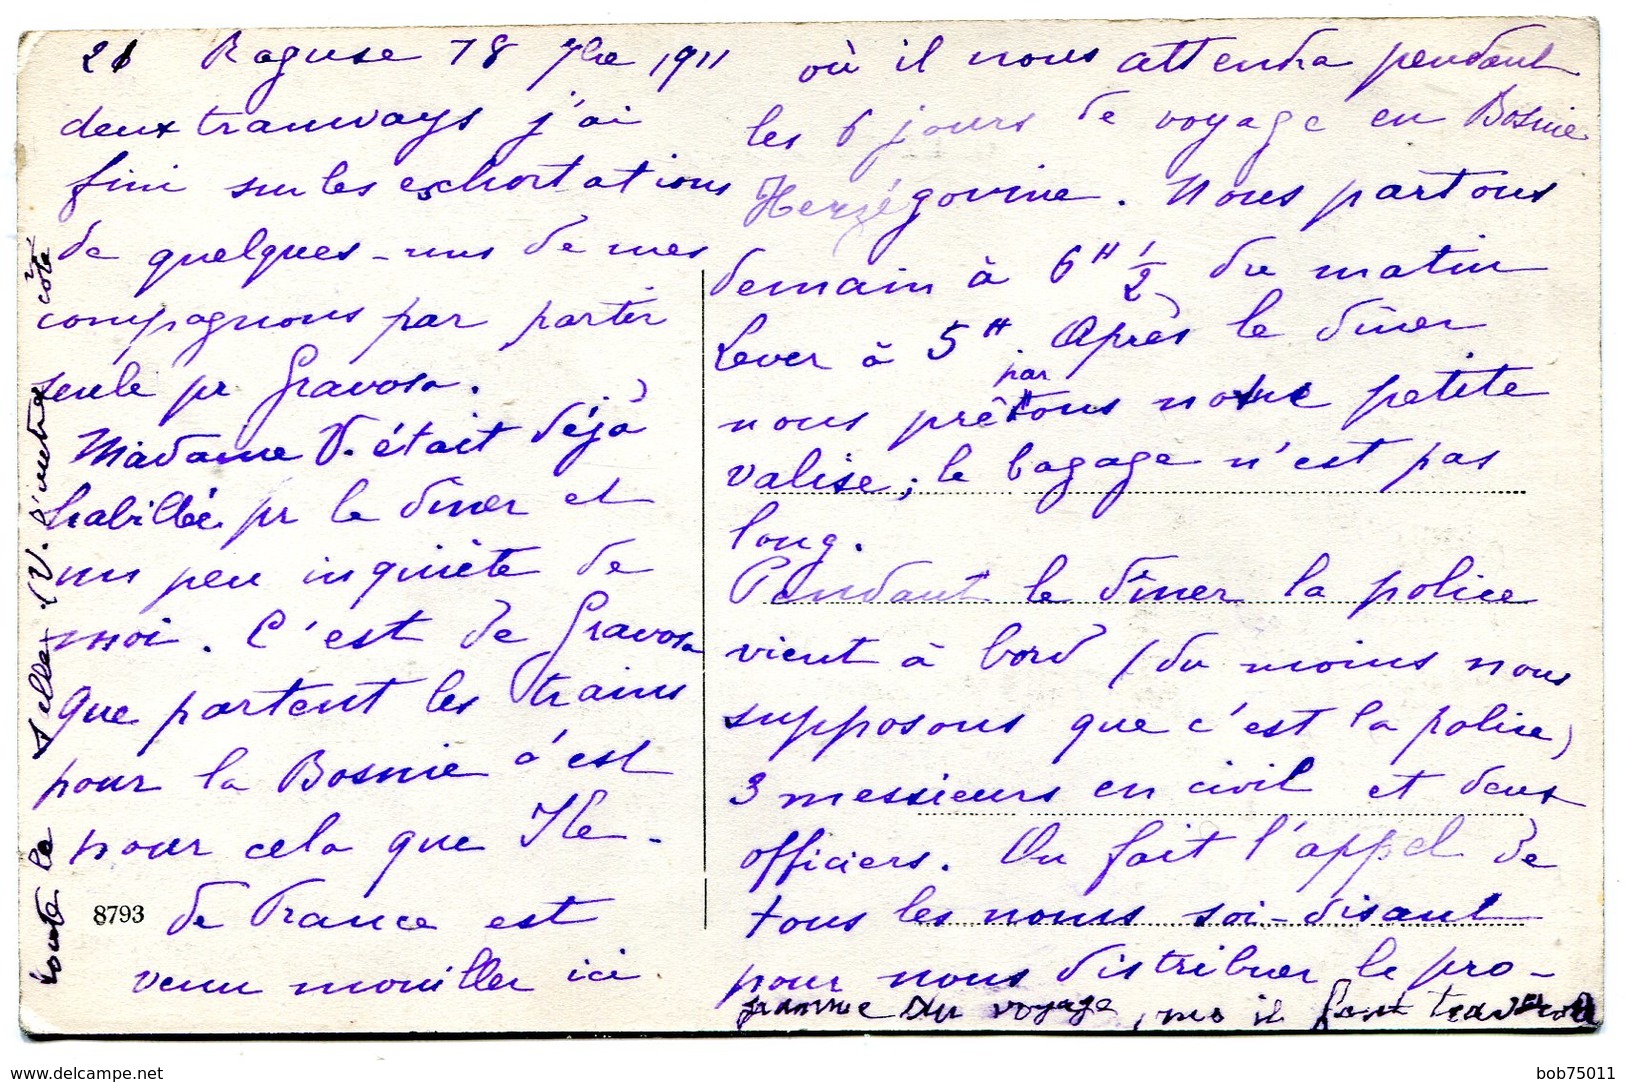 21 Raguse 18 7bre 1911
deux tramways j'ai
fini sur les exhortations
de quelques-uns de mes
compagnons par partir
seule pr Gravosa.
Madame V. était déjà
habillée pr le dîner et
un peu inquiète de
moi. C'est de Gravosa
que partent les trains
pour la Bosnie c'est
pour cela que Ile-
de France est
venu mouiller ici
8793
où il nous attendra pendant
les 6 jours de voyage en Bosnie
Herzégovine. Nous partons
demain à 6H 1/2 du matin
Lever à 5H. Après le dîner
nous préparons notre petite
valise; le bagage n'est pas
long.
Pendant le dîner la police
vient à bord (du moins nous
supposons que c'est la police)
3 messieurs en civil et deux
officiers. On fait l'appel de
tous les noms soi-disant
pour nous distribuer le pro-
gramme du voyage, il faut
toute la (V. d'autre côté
delcampe.net
bob75011